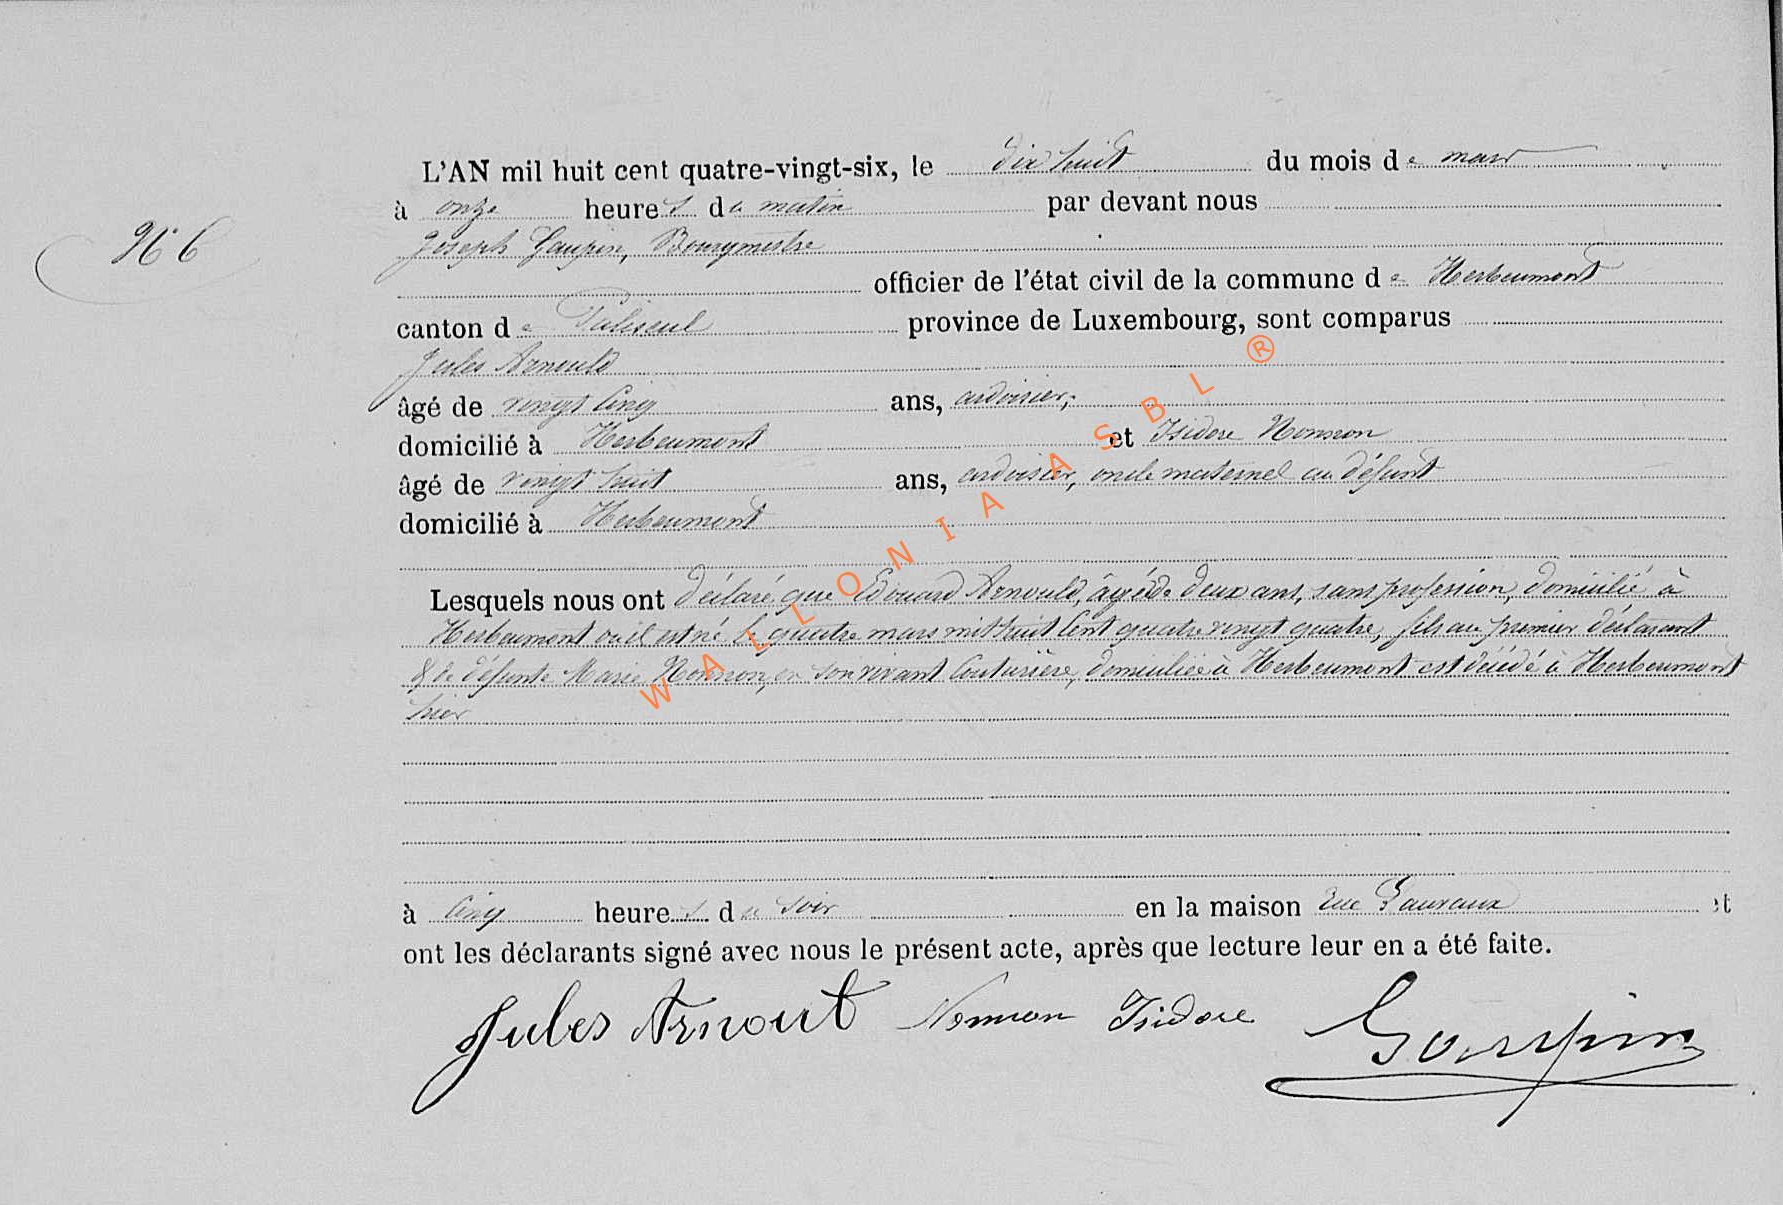 N° 6
L'AN mil huit cent quatre-vingt-six, le dix huit du mois de mars
à onze heures du matin par devant nous
Joseph Gaupin, Bourgmestre
officier de l'état civil de la commune de Herbeumont
canton de Paliseul province de Luxembourg, sont comparus
Jules Arnould
âgé de vingt cinq ans, ardoisier,
domicilié à Herbeumont et Isidore Nonnon
âgé de vingt huit ans, ardoisier, oncle maternel au défunt
domicilié à Herbeumont
Lesquels nous ont déclaré que Edouard Arnould, âgé de deux ans, sans profession, domicilié à
Herbeumont où il est né le quatre mars mil huit cent quatre vingt quatre, fils au premier déclarant
& de défunte Marie Nonnon, en son vivant Couturière, domiciliée à Herbeumont est décédé à Herbeumont
hier
à cinq heures du soir en la maison rue et
ont les déclarants signé avec nous le présent acte, après que lecture leur en a été faite.
Jules Arnout Nonnon Isidore Gaupin
WALLONIA ASBL ®